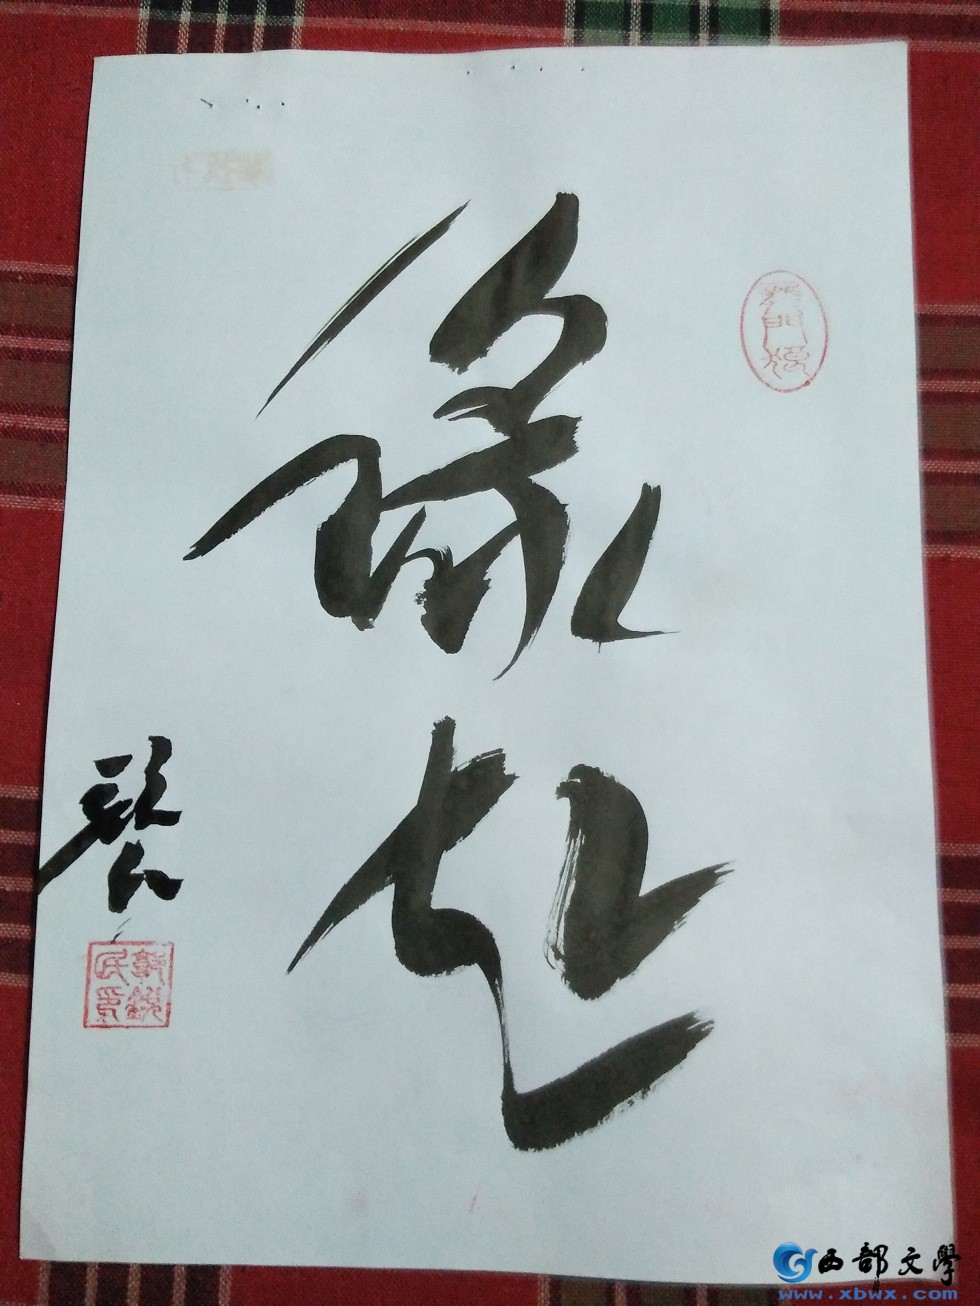 缘起
郭銳民印
西部文學
www.xbwx.com